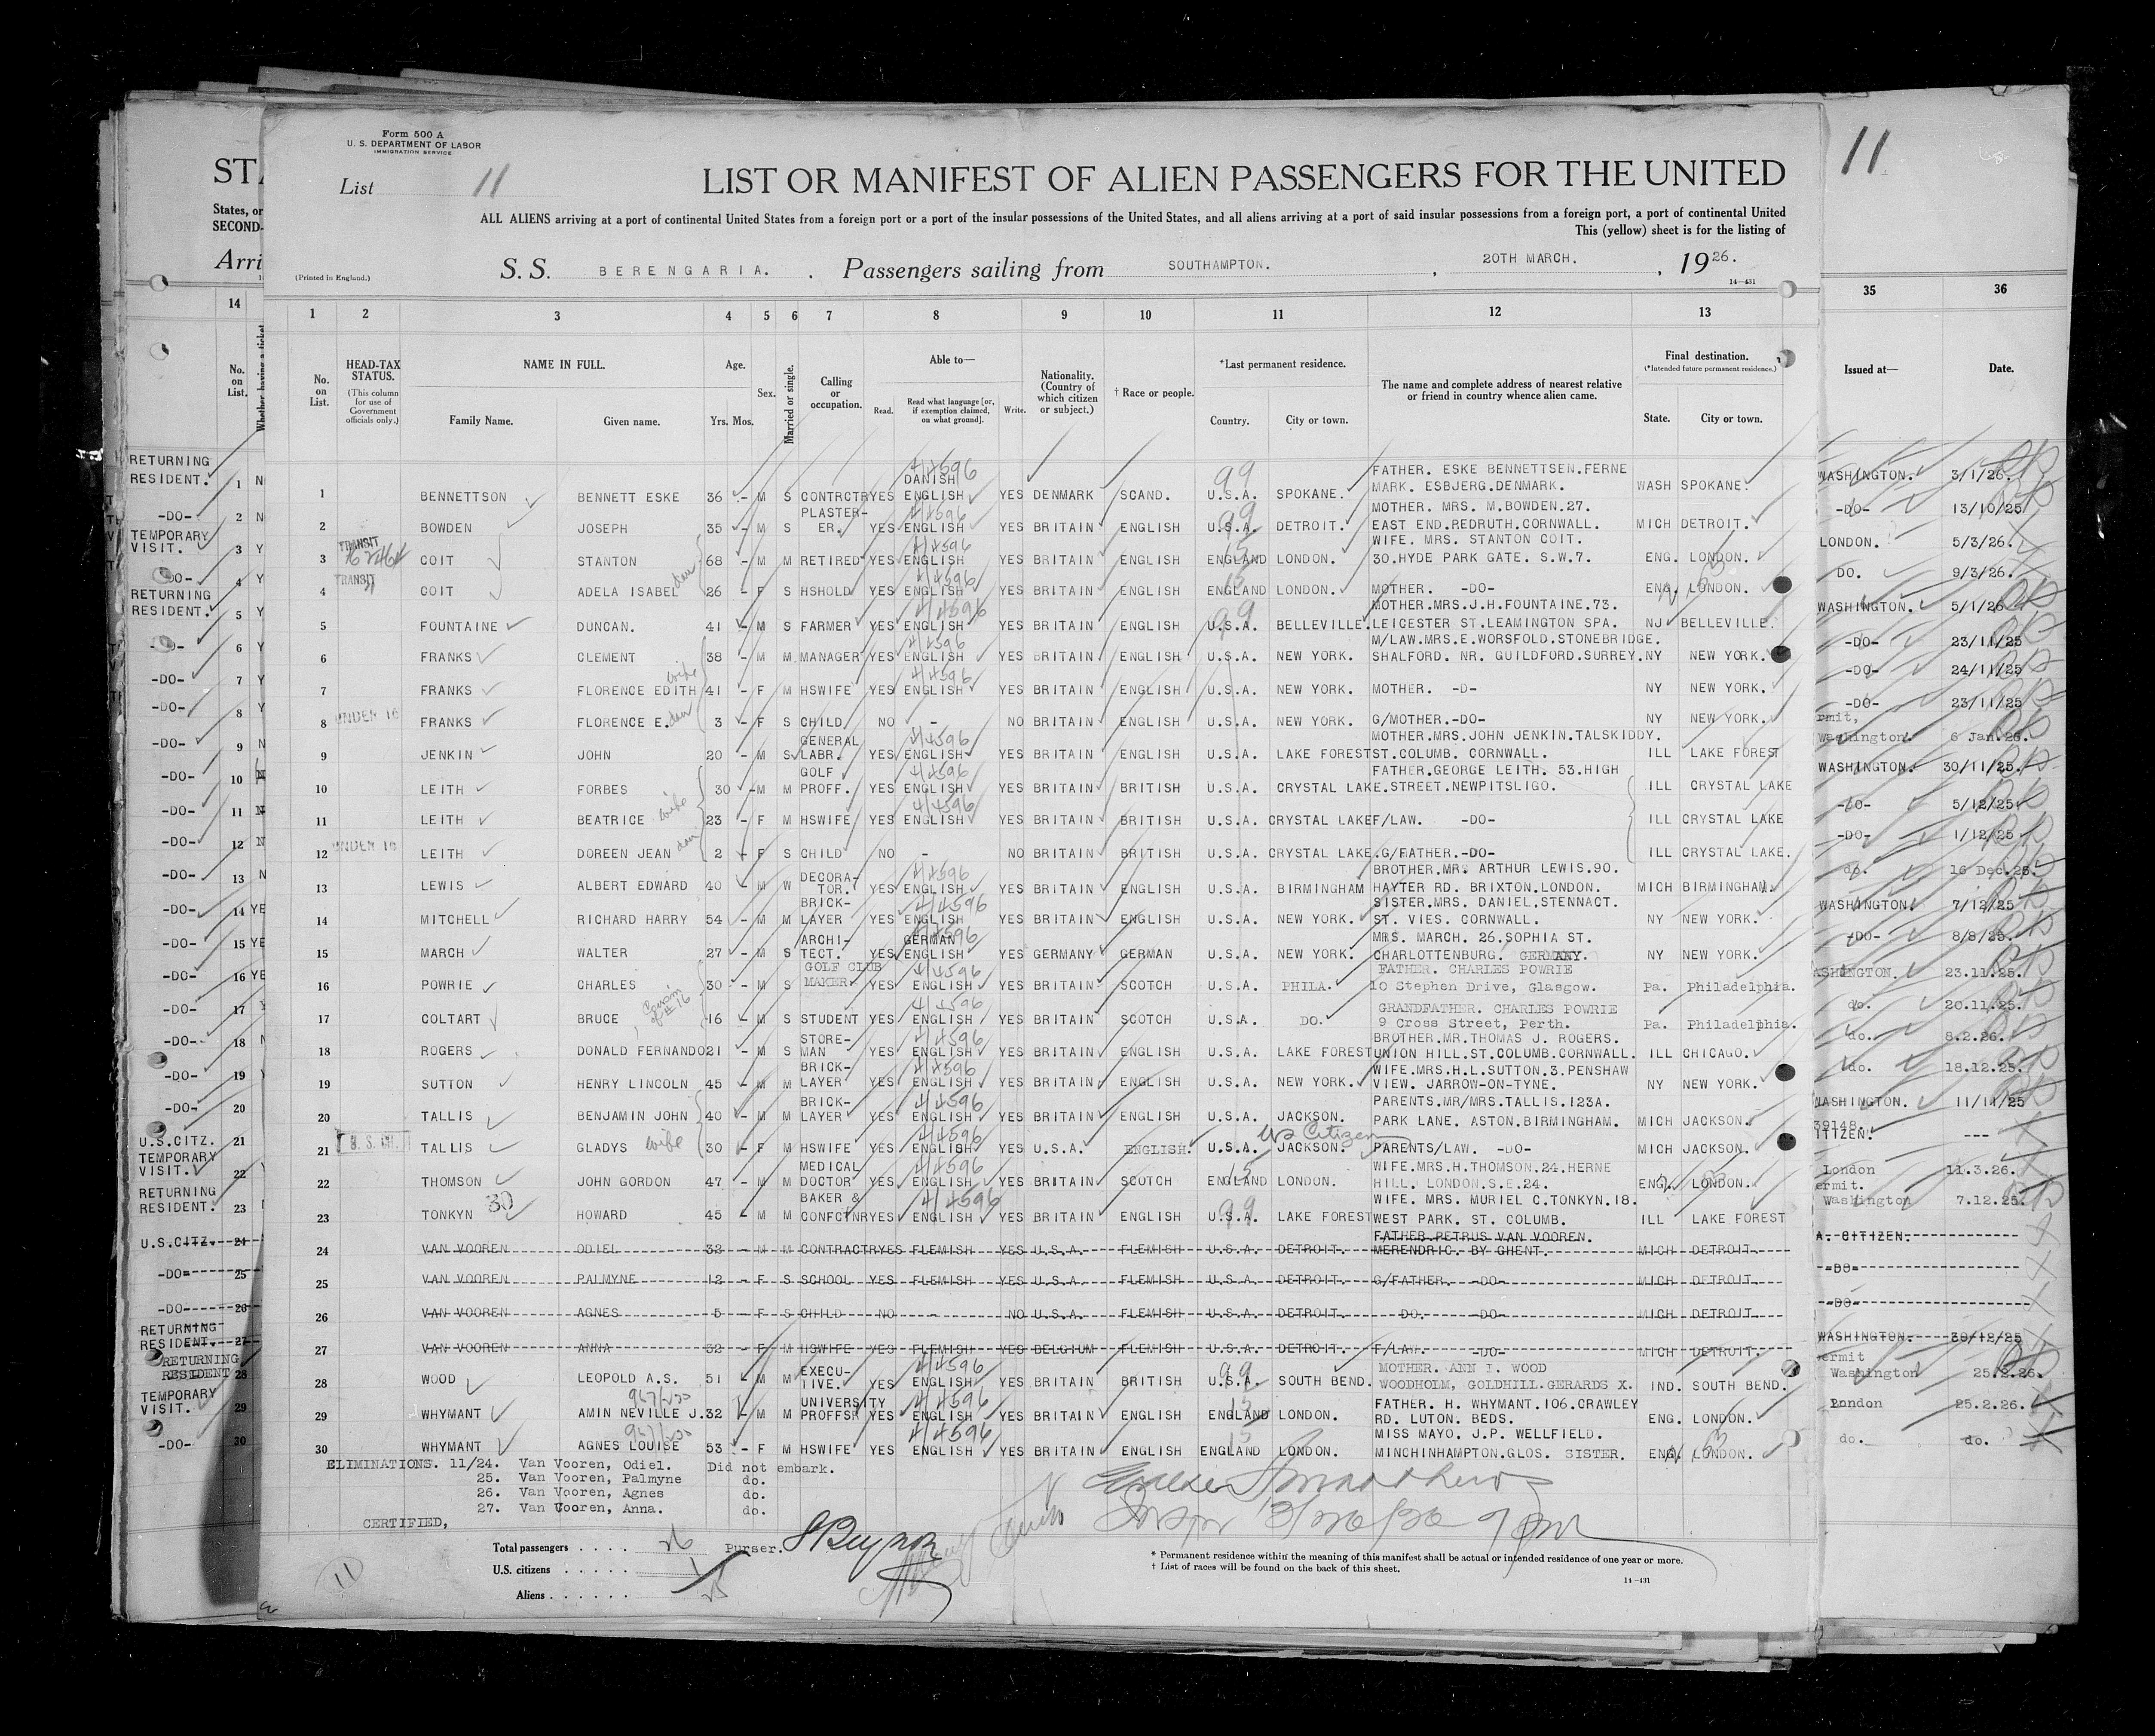 Form 500 A
U. S. DEPARTMENT OF LABOR
IMMIGRATION SERVICE
List 11
LIST OR MANIFEST OF ALIEN PASSENGERS FOR THE UNITED
ALL ALIENS arriving at a port of continental United States from a foreign port or a port of the insular possessions of the United States, and all aliens arriving at a port of said insular possessions from a foreign port, a port of continental United
This (yellow) sheet is for the listing of
(Printed in England.)
S. S. BERENGARIA. , Passengers sailing from SOUTHAMPTON. , 20TH MARCH. , 1926.
14—431
1 2 3 4 5 6 7 8 9 10 11 12 13
No. on List.
HEAD-TAX STATUS.
(This column for use of Government officials only.)
NAME IN FULL.
Family Name. Given name.
Age.
Yrs. Mos.
Sex.
Married or single.
Calling or occupation.
Able to—
Read. Read what language [or, if exemption claimed, on what ground]. Write.
Nationality. (Country of which citizen or subject.)
† Race or people.
*Last permanent residence.
Country. City or town.
The name and complete address of nearest relative or friend in country whence alien came.
Final destination.
(*Intended future permanent residence.)
State. City or town.
1 BENNETTSON BENNETT ESKE 36 - M S CONTRCTR YES DANISH ENGLISH YES DENMARK SCAND. U.S.A. SPOKANE. FATHER. ESKE BENNETTSEN.FERNE MARK. ESBJERG.DENMARK. WASH SPOKANE.
2 BOWDEN JOSEPH 35 - M S PLASTER-ER. YES ENGLISH YES BRITAIN ENGLISH U.S.A. DETROIT. MOTHER. MRS. M.BOWDEN.27. EAST END.REDRUTH.CORNWALL. MICH DETROIT.
3 TRANSIT COIT STANTON 68 - M M RETIRED YES ENGLISH YES BRITAIN ENGLISH ENGLAND LONDON. WIFE. MRS. STANTON COIT. 30.HYDE PARK GATE. S.W.7. ENG. LONDON.
4 TRANSIT COIT ADELA ISABEL 26 - F S HSHOLD YES ENGLISH YES BRITAIN ENGLISH ENGLAND LONDON. MOTHER. -DO- ENG. LONDON.
5 FOUNTAINE DUNCAN. 41 - M S FARMER YES ENGLISH YES BRITAIN ENGLISH U.S.A. BELLEVILLE. MOTHER.MRS.J.H.FOUNTAINE.73. LEICESTER ST.LEAMINGTON SPA. NJ BELLEVILLE.
6 FRANKS CLEMENT 38 - M M MANAGER YES ENGLISH YES BRITAIN ENGLISH U.S.A. NEW YORK. M/LAW.MRS.E.WORSFOLD.STONEBRIDGE. SHALFORD. NR. GUILDFORD.SURREY. NY NEW YORK.
7 FRANKS FLORENCE EDITH wife 41 - F M HSWIFE YES ENGLISH YES BRITAIN ENGLISH U.S.A. NEW YORK. MOTHER. -D- NY NEW YORK.
8 UNDER 16 FRANKS FLORENCE E. 3 - F S CHILD NO - NO BRITAIN ENGLISH U.S.A. NEW YORK. G/MOTHER.-DO- NY NEW YORK.
9 JENKIN JOHN 20 - M S GENERAL LABR. YES ENGLISH YES BRITAIN ENGLISH U.S.A. LAKE FOREST MOTHER.MRS.JOHN JENKIN.TALSKIDDY. ST.COLUMB. CORNWALL. ILL LAKE FOREST
10 LEITH FORBES 30 - M M GOLF PROFF. YES ENGLISH YES BRITAIN BRITISH U.S.A. CRYSTAL LAKE. FATHER.GEORGE LEITH. 53.HIGH STREET.NEWPITSLIGO. ILL CRYSTAL LAKE
11 LEITH BEATRICE wife 23 - F M HSWIFE YES ENGLISH YES BRITAIN BRITISH U.S.A. CRYSTAL LAKE F/LAW. -DO- ILL CRYSTAL LAKE
12 UNDER 16 LEITH DOREEN JEAN 2 - F S CHILD NO - NO BRITAIN BRITISH U.S.A. CRYSTAL LAKE. G/FATHER.-DO- ILL CRYSTAL LAKE.
13 LEWIS ALBERT EDWARD 40 - M W DECORA-TOR. YES ENGLISH YES BRITAIN ENGLISH U.S.A. BIRMINGHAM BROTHER.MR. ARTHUR LEWIS.90. HAYTER RD. BRIXTON.LONDON. MICH BIRMINGHAM.
14 MITCHELL RICHARD HARRY 54 - M M BRICK-LAYER YES ENGLISH YES BRITAIN ENGLISH U.S.A. NEW YORK. SISTER.MRS. DANIEL.STENNACT. ST. VIES. CORNWALL. NY NEW YORK.
15 MARCH WALTER 27 - M S ARCHI-TECT. YES GERMAN ENGLISH YES GERMANY GERMAN U.S.A. NEW YORK. MRS. MARCH. 26.SOPHIA ST. CHARLOTTENBURG. GERMANY. NY NEW YORK.
16 POWRIE CHARLES 30 - M S GOLF CLUB MAKER YES ENGLISH YES BRITAIN SCOTCH U.S.A. PHILA. FATHER. CHARLES POWRIE 10 Stephen Drive, Glasgow. Pa. Philadelphia.
17 COLTART BRUCE Cousin of #16 16 - M S STUDENT YES ENGLISH YES BRITAIN SCOTCH U.S.A. DO. GRANDFATHER. CHARLES POWRIE 9 Cross Street, Perth. Pa. Philadelphia.
18 ROGERS DONALD FERNANDO 21 - M S STORE-MAN YES ENGLISH YES BRITAIN ENGLISH U.S.A. LAKE FOREST BROTHER.MR.THOMAS J. ROGERS. UNION HILL.ST.COLUMB.CORNWALL. ILL CHICAGO.
19 SUTTON HENRY LINCOLN 45 - M M BRICK-LAYER YES ENGLISH YES BRITAIN ENGLISH U.S.A. NEW YORK. WIFE.MRS.H.L.SUTTON.3.PENSHAW VIEW. JARROW-ON-TYNE. NY NEW YORK.
20 TALLIS BENJAMIN JOHN 40 - M M BRICK-LAYER YES ENGLISH YES BRITAIN ENGLISH U.S.A. JACKSON. PARENTS.MR/MRS.TALLIS.123A. PARK LANE. ASTON.BIRMINGHAM. MICH JACKSON.
21 TALLIS GLADYS wife 30 - F M HSWIFE YES ENGLISH YES U.S.A. ENGLISH. U.S.A. JACKSON. US Citizen PARENTS/LAW. -DO- MICH JACKSON.
22 THOMSON JOHN GORDON 47 - M M MEDICAL DOCTOR YES ENGLISH YES BRITAIN SCOTCH ENGLAND LONDON. WIFE.MRS.H.THOMSON.24.HERNE HILL. LONDON.S.E.24. ENG. LONDON.
23 TONKYN 30 HOWARD 45 - M M BAKER & CONFCTNR YES ENGLISH YES BRITAIN ENGLISH U.S.A. LAKE FOREST WIFE. MRS. MURIEL C.TONKYN.18. WEST PARK. ST. COLUMB. ILL LAKE FOREST
24 VAN VOOREN ODIEL 32 - M M CONTRACTR YES FLEMISH YES U.S.A. FLEMISH U.S.A. DETROIT. FATHER.PETRUS VAN VOOREN. MERENDRIC. BY GHENT. MICH DETROIT
25 VAN VOOREN PALMYNE 12 - F S SCHOOL YES FLEMISH YES U.S.A. FLEMISH U.S.A. DETROIT. G/FATHER. -DO- MICH DETROIT
26 VAN VOOREN AGNES 5 - F S CHILD NO - NO U.S.A. FLEMISH U.S.A. DETROIT. DO. -DO- MICH DETROIT
27 VAN VOOREN ANNA 32 - F M HSWIFE YES FLEMISH YES BELGIUM FLEMISH U.S.A. DETROIT. F/LAW. -DO- MICH DETROIT.
28 WOOD LEOPOLD A.S. 51 - M M EXECU-TIVE. YES ENGLISH YES BRITAIN BRITISH U.S.A. SOUTH BEND. MOTHER. ANN I. WOOD WOODHOLM, GOLDHILL.GERARDS X. IND. SOUTH BEND.
29 WHYMANT AMIN NEVILLE J. 32 - M M UNIVERSITY PROFFSR YES ENGLISH YES BRITAIN ENGLISH ENGLAND LONDON. FATHER. H. WHYMANT.106.CRAWLEY RD. LUTON. BEDS. ENG. LONDON.
30 WHYMANT AGNES LOUISE 53 - F M HSWIFE YES ENGLISH YES BRITAIN ENGLISH ENGLAND LONDON. MISS MAYO. J.P. WELLFIELD. MINCHINHAMPTON.GLOS. SISTER. ENG. LONDON.
ELIMINATIONS. 11/24. Van Vooren, Odiel. Did not embark.
25. Van Vooren, Palmyne do.
26. Van Vooren, Agnes do.
27. Van Vooren, Anna. do.
CERTIFIED,
Total passengers . . . . 26
Purser.
U.S. citizens . . . . . 1
Aliens . . . . . . 25
11
* Permanent residence within the meaning of this manifest shall be actual or intended residence of one year or more.
† List of races will be found on the back of this sheet.
14—431
States, or
SECOND-
Arri
14
No. on List.
Whether having a ticket
RETURNING RESIDENT. 1 N
-DO- 2 N
TEMPORARY VISIT. 3 Y
-DO- 4 Y
RETURNING RESIDENT. 5 Y
-DO- 6 Y
-DO- 7 Y
-DO- 8 Y
-DO- 9 N
-DO- 10 N
-DO- 11 N
-DO- 12 N
-DO- 13 N
-DO- 14 YE
-DO- 15 YE
-DO- 16 YE
-DO- 17 Y
-DO- 18
-DO- 19
-DO- 20
U.S.CITZ. 21
TEMPORARY VISIT. 22
RETURNING RESIDENT. 23
U.S.CITZ. 24
-DO- 25
-DO- 26
RETURNING RESIDENT. 27
RETURNING RESIDENT 28
TEMPORARY VISIT. 29
-DO- 30
11
35 36
Issued at— Date.
WASHINGTON. 3/1/26.
-DO- 13/10/25
LONDON. 5/3/26.
DO. 9/3/26.
WASHINGTON. 5/1/26
-DO- 23/11/25
-DO- 24/11/25
-DO- 23/11/25
Washington. 6 Jan.26.
WASHINGTON. 30/11/25.
-DO- 5/12/25
-DO- 1/12/25
do. 16 Dec.25.
WASHINGTON. 7/12/25
-DO- 8/8/25.
ASHINGTON. 23.11.25.
do. 20.11.25.
do. 8.2.26.
do. 18.12.25.
WASHINGTON. 11/11/25
39148.
ITIZEN. ---
London 11.3.26.
ermit.
Washington 7.12.25.
A. CITIZEN.
-DO-
-DO-
WASHINGTON. 30/12/25
ermit
Washington 25.2.26.
London 25.2.26.
do. do.